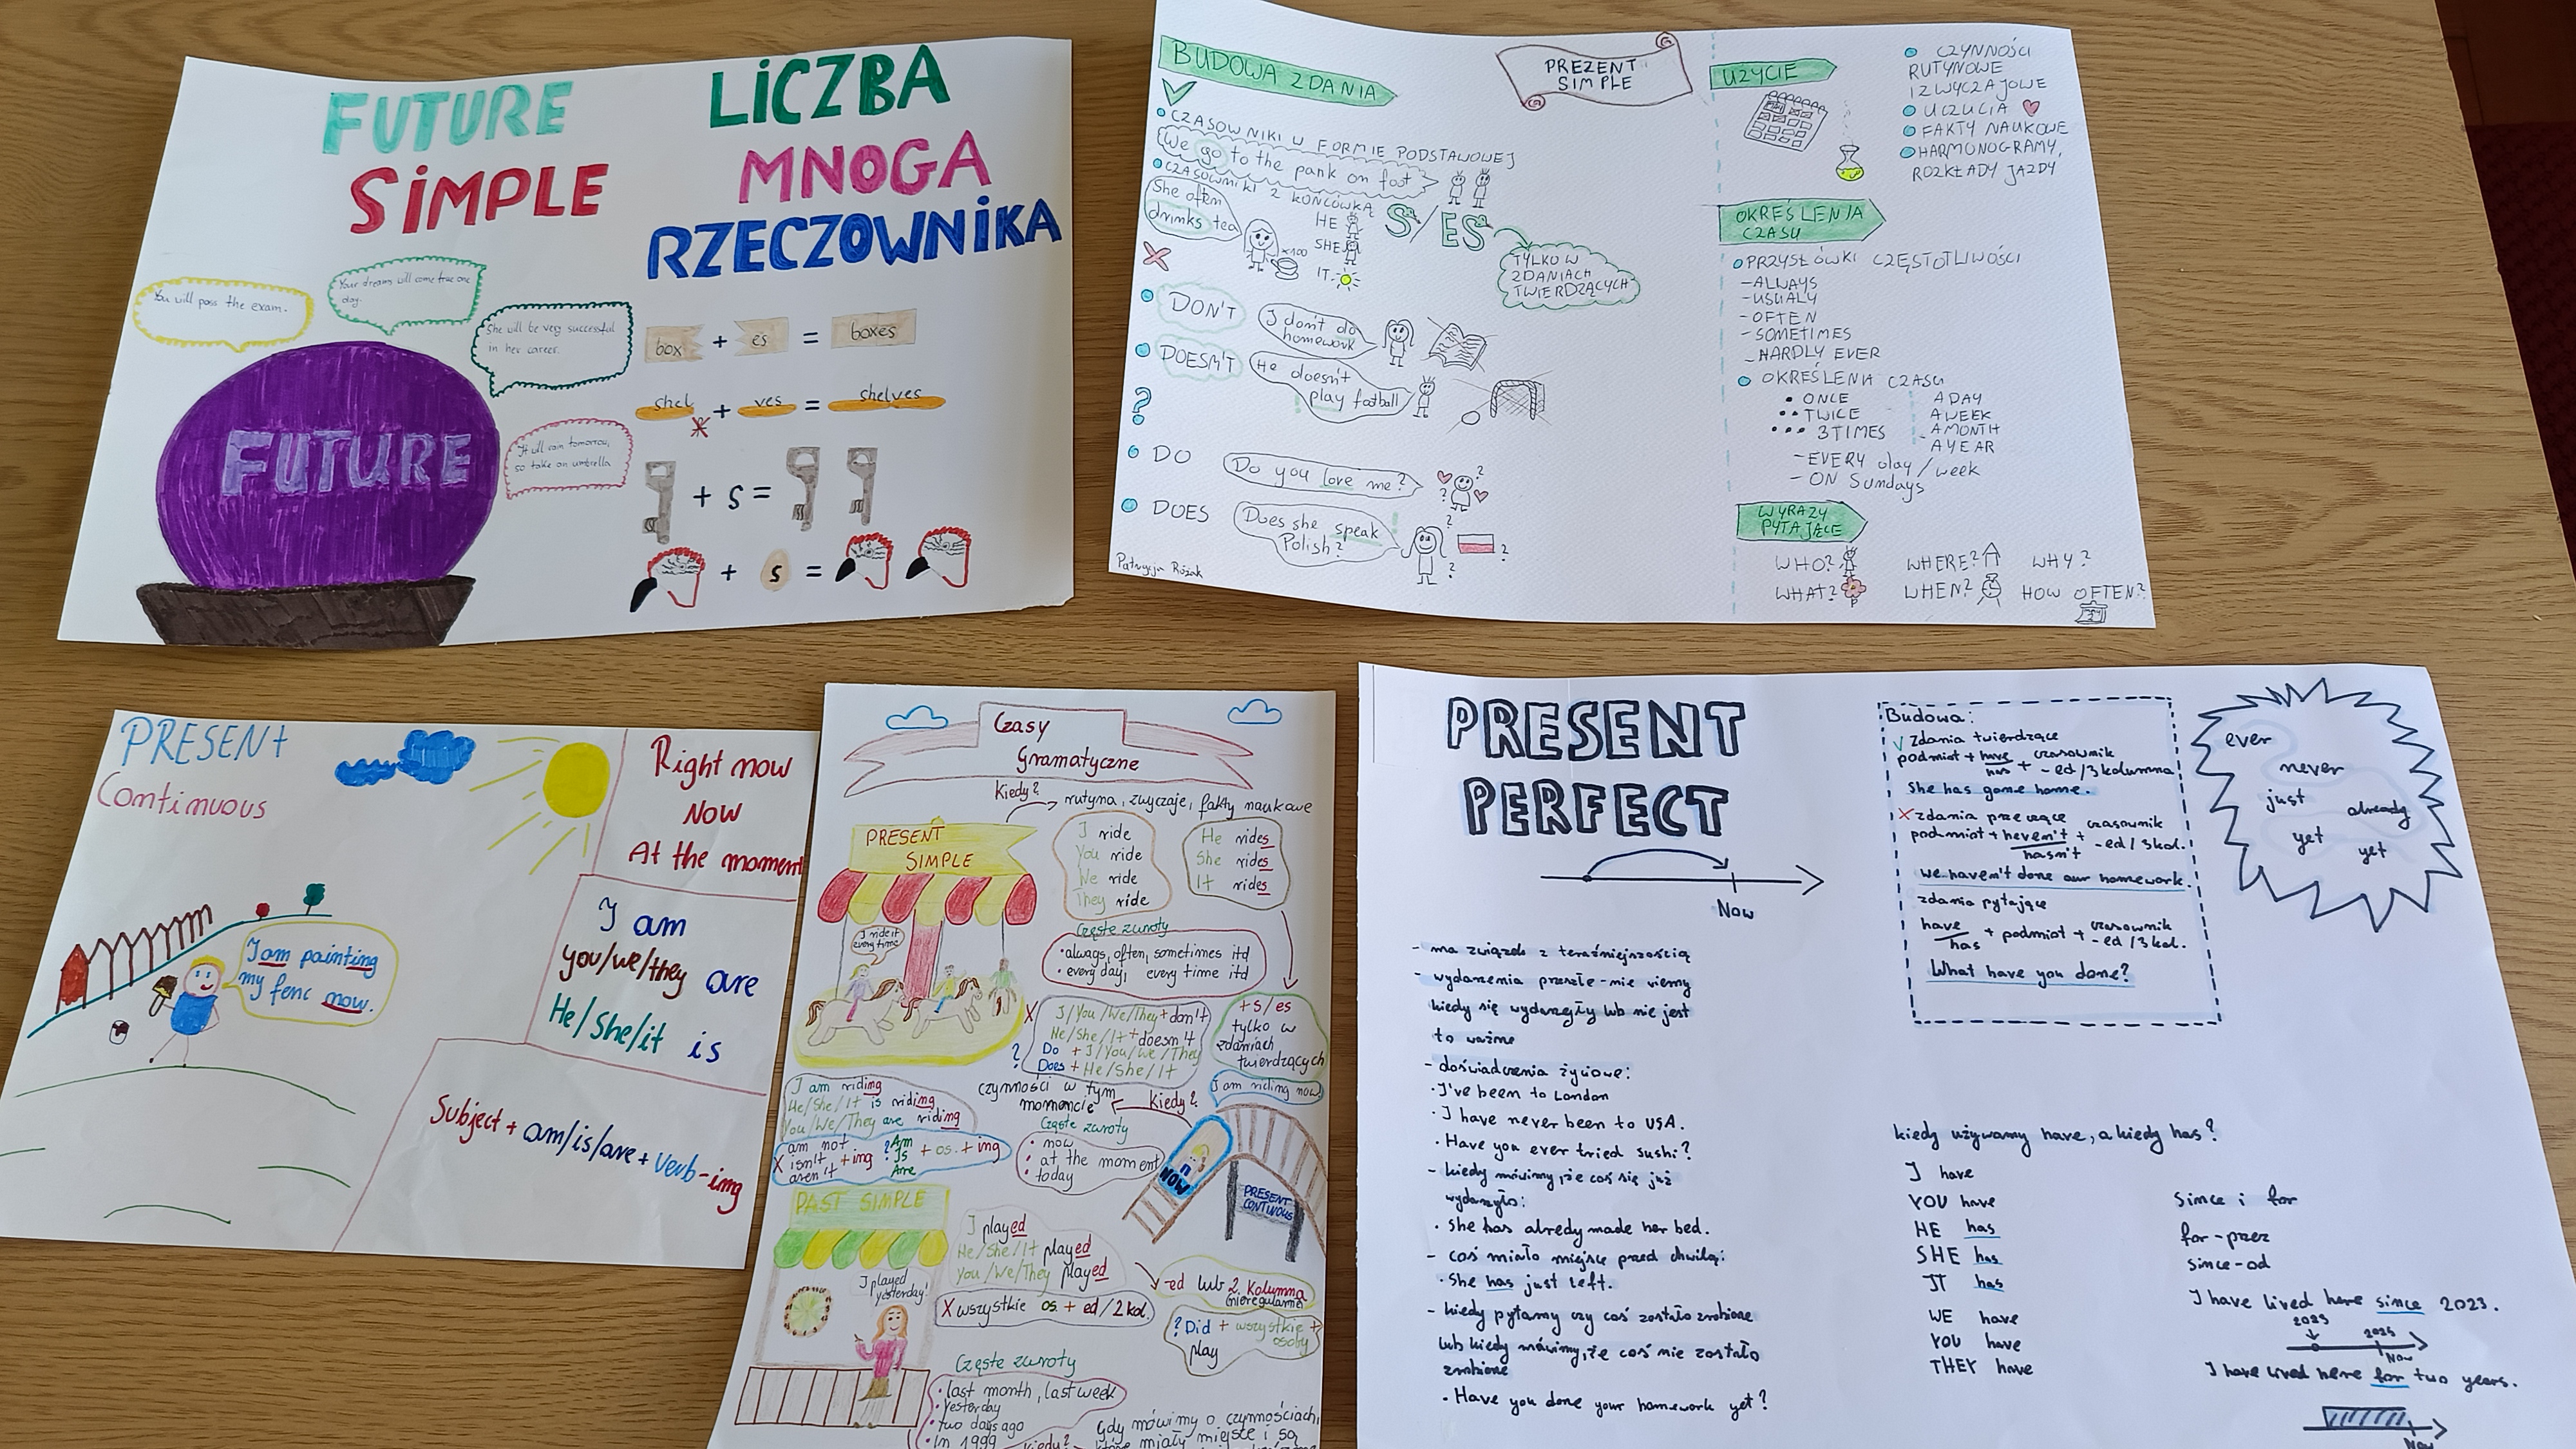 FUTURE
SIMPLE
You will pass the exam.
Your dreams will come true one
day.
She will be very successful
in her career.
It will rain tomorrow,
so take an umbrella
FUTURE
LICZBA
MNOGA
RZECZOWNIKA
box + es = boxes
shel + ves = shelves
+ s =
+ s =
PREZENT
SIMPLE
BUDOWA ZDANIA
CZASOWNIKI W FORMIE PODSTAWOWEJ
We go to the pank on foot
CZASOWNIKI Z KOŃCÓWKĄ
S/ES
She often
drinks tea
x100
HE
SHE
IT
TYLKO W
ZDANIACH
TWIERDZĄCYCH
DON'T
I don't do
homework
DOESN'T
He doesn't
play football
?
DO
Do you love me?
DOES
Does she speak
Polish?
Patrycja Rózak
UŻYCIE
CZYNNOŚCI
RUTYNOWE
I ZWYCZAJOWE
UCZUCIA
FAKTY NAUKOWE
HARMONOGRAMY,
ROZKŁADY JAZDY
OKREŚLENIA
CZASU
PRZYSŁÓWKI CZĘSTOTLIWOŚCI
-ALWAYS
-USUALY
-OFTEN
-SOMETIMES
-HARDLY EVER
OKREŚLENIA CZASU
ONCE
TWICE
3 TIMES
A DAY
A WEEK
A MONTH
A YEAR
-EVERY day/week
-ON Sundays
WYRAZY
PYTAJĄCE
WHO? WHERE? WHY?
WHAT? WHEN? HOW OFTEN?
PRESENT
Continuous
I am painting
my fenc now.
Right now
Now
At the moment
I am
you/we/they are
He/She/it is
Subject + am/is/are + verb-ing
Czasy
Gramatyczne
Kiedy?
rutyna, zwyczaje, fakty naukowe
PRESENT
SIMPLE
I ride
You ride
We ride
They ride
He rides
She rides
It rides
I ride it
every time
Częste zwroty
• always, often, sometimes itd
• every day, every time itd
X I/You/We/They + don't
He/She/It + doesn't
? Do + I/You/We/They
Does + He/She/It
+ s/es
tylko w
zdaniach
twierdzących
I am riding
He/She/It is riding
You/We/They are riding
X am not
isn't + ing
aren't
? Am
Is + os. + ing
Are
czynności w tym
momencie
Kiedy?
Częste zwroty
• now
• at the moment
• today
I am riding now
NOW
PRESENT
CONTINOUS
PAST SIMPLE
I played
He/She/It played
You/We/They played
-ed lub 2. Kolumna
(nieregularne)
X wszystkie os. + ed/2 kol.
? Did + wszystkie +
osoby
play
I played
yesterday!
Częste zwroty
• last month, last week
• yesterday
• two days ago
• In 1999
Kiedy?
Gdy mówimy o czynnościach,
które miały miejsce i są
PRESENT
PERFECT
Now
- ma związek z teraźniejszością
- wydarzenia przeszłe - nie wiemy
kiedy się wydarzyły lub nie jest
to ważne
- doświadczenia życiowe:
• I've been to London
• I have never been to USA.
• Have you ever tried sushi?
- kiedy mówimy, że coś się już
wydarzyło:
• She has alredy made her bed.
- coś miało miejsce przed chwilą:
• She has just left.
- kiedy pytamy czy coś zostało zrobione
lub kiedy mówimy, że coś nie zostało
zrobione
• Have you done your homework yet?
Budowa:
√ Zdania twierdzące
podmiot + have/has + czasownik -ed/3 kolumna
She has gone home.
X zdania przeczące
podmiot + heven't/hasn't + czasownik -ed/3 kol.
we haven't done our homework.
zdania pytające
have/has + podmiot + czasownik -ed/3 kol.
What have you done?
ever
never
just
already
yet
yet
kiedy używamy have, a kiedy has?
I have
YOU have
HE has
SHE has
IT has
WE have
YOU have
THEY have
Since i for
for - przez
since - od
I have lived here since 2023.
2023
2025
Now
I have lived here for two years.
Now